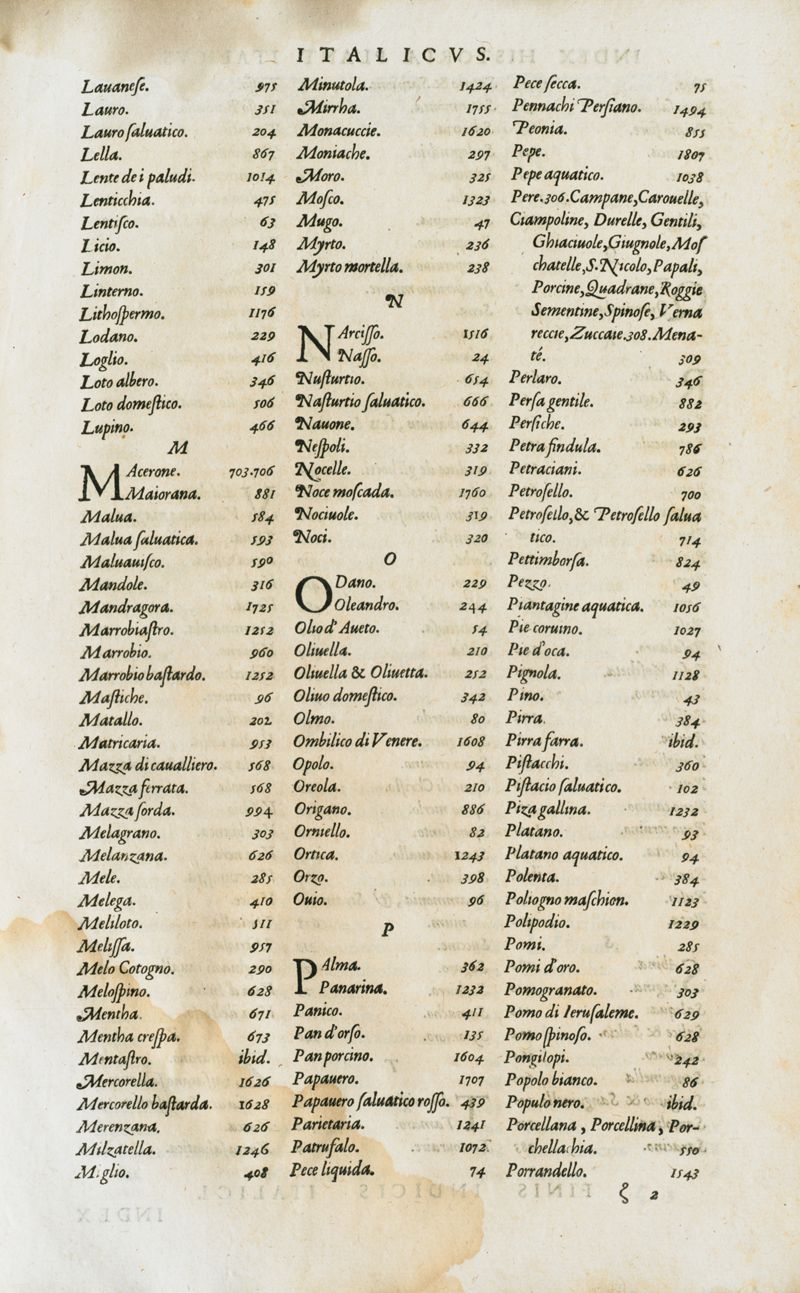 ITALICVS.
Lauanese. 975
Lauro. 351
Lauro saluatico. 204
Lella. 867
Lente de i paludi. 1014
Lenticchia. 475
Lentisco. 63
Licio. 148
Limon. 301
Linterno. 159
Lithospermo. 1176
Lodano. 229
Loglio. 416
Loto albero. 346
Loto domestico. 506
Lupino. 466
M
MAcerone. 703.706
Maiorana. 881
Malua. 584
Malua saluatica. 593
Maluauisco. 590
Mandole. 316
Mandragora. 1725
Marrobiastro. 1252
Marrobio. 960
Marrobio bastardo. 1252
Mastiche. 96
Matallo. 202
Matricaria. 953
Mazza di caualliero. 568
Mazza ferrata. 568
Mazza sorda. 994
Melagrano. 303
Melanzana. 626
Mele. 285
Melega. 410
Meliloto. 511
Melissa. 957
Melo Cotogno. 290
Melospino. 628
Mentha. 671
Mentha crespa. 673
Mentastro. ibid.
Mercorella. 1626
Mercorello bastarda. 1628
Merenzana. 626
Milzatella. 1246
Miglio. 408
Minutola. 1424
Mirrha. 1755
Monacuccie. 1620
Moniache. 297
Moro. 325
Mosco. 1323
Mugo. 47
Myrto. 236
Myrto mortella. 238
N
NArcisso. 1516
Nasso. 24
Nusturtio. 654
Nasturtio saluatico. 666
Nauone. 644
Nespoli. 332
Nocelle. 319
Noce moscada. 1760
Nociuole. 319
Noci. 320
O
ODano. 229
Oleandro. 244
Olio d'Aueto. 54
Oliuella. 210
Oliuella & Oliuetta. 252
Oliuo domestico. 342
Olmo. 80
Ombilico di Venere. 1608
Opolo. 94
Oreola. 210
Origano. 886
Orniello. 82
Ortica. 1243
Orzo. 398
Ouio. 96
P
PAlma. 362
Panarina. 1232
Panico. 411
Pan d'orso. 135
Pan porcino. 1604
Papauero. 1707
Papauero saluatico rosso. 439
Parietaria. 1241
Patrufalo. 1072
Pece liquida. 74
Pece secca. 75
Pennachi Persiano. 1494
Peonia. 855
Pepe. 1807
Pepe aquatico. 1038
Pere.306.Campane,Carouelle,
Ciampoline, Durelle, Gentili,
Ghiaciuole,Giugnole,Mos
chatelle,S.Nicolo,Papali,
Porcine,Quadrane,Roggie
Sementine,Spinose, Verna
reccie,Zuccaie.308.Mena-
té. 309
Perlaro. 346
Persa gentile. 882
Persiche. 293
Petra findula. 786
Petraciani. 626
Petrosello. 700
Petrosello,& Petrosello salua
tico. 714
Pettimborsa. 824
Pezzo. 49
Piantagine aquatica. 1056
Pie coruino. 1027
Pie d'oca. 94
Pignola. 1128
Pino. 43
Pirra. 384
Pirra farra. ibid.
Pistacchi. 360
Pistacio saluatico. 102
Piza gallina. 1232
Platano. 93
Platano aquatico. 94
Polenta. 384
Poliogno maschion. 1123
Polipodio. 1229
Pomi. 285
Pomi d'oro. 628
Pomogranato. 303
Pomo di Ierusaleme. 629
Pomo spinoso. 628
Pongilopi. 242
Popolo bianco. 86
Populo nero. ibid.
Porcellana, Porcellina, Por-
chellachia. 550
Porrandello. 1543
ζ 2